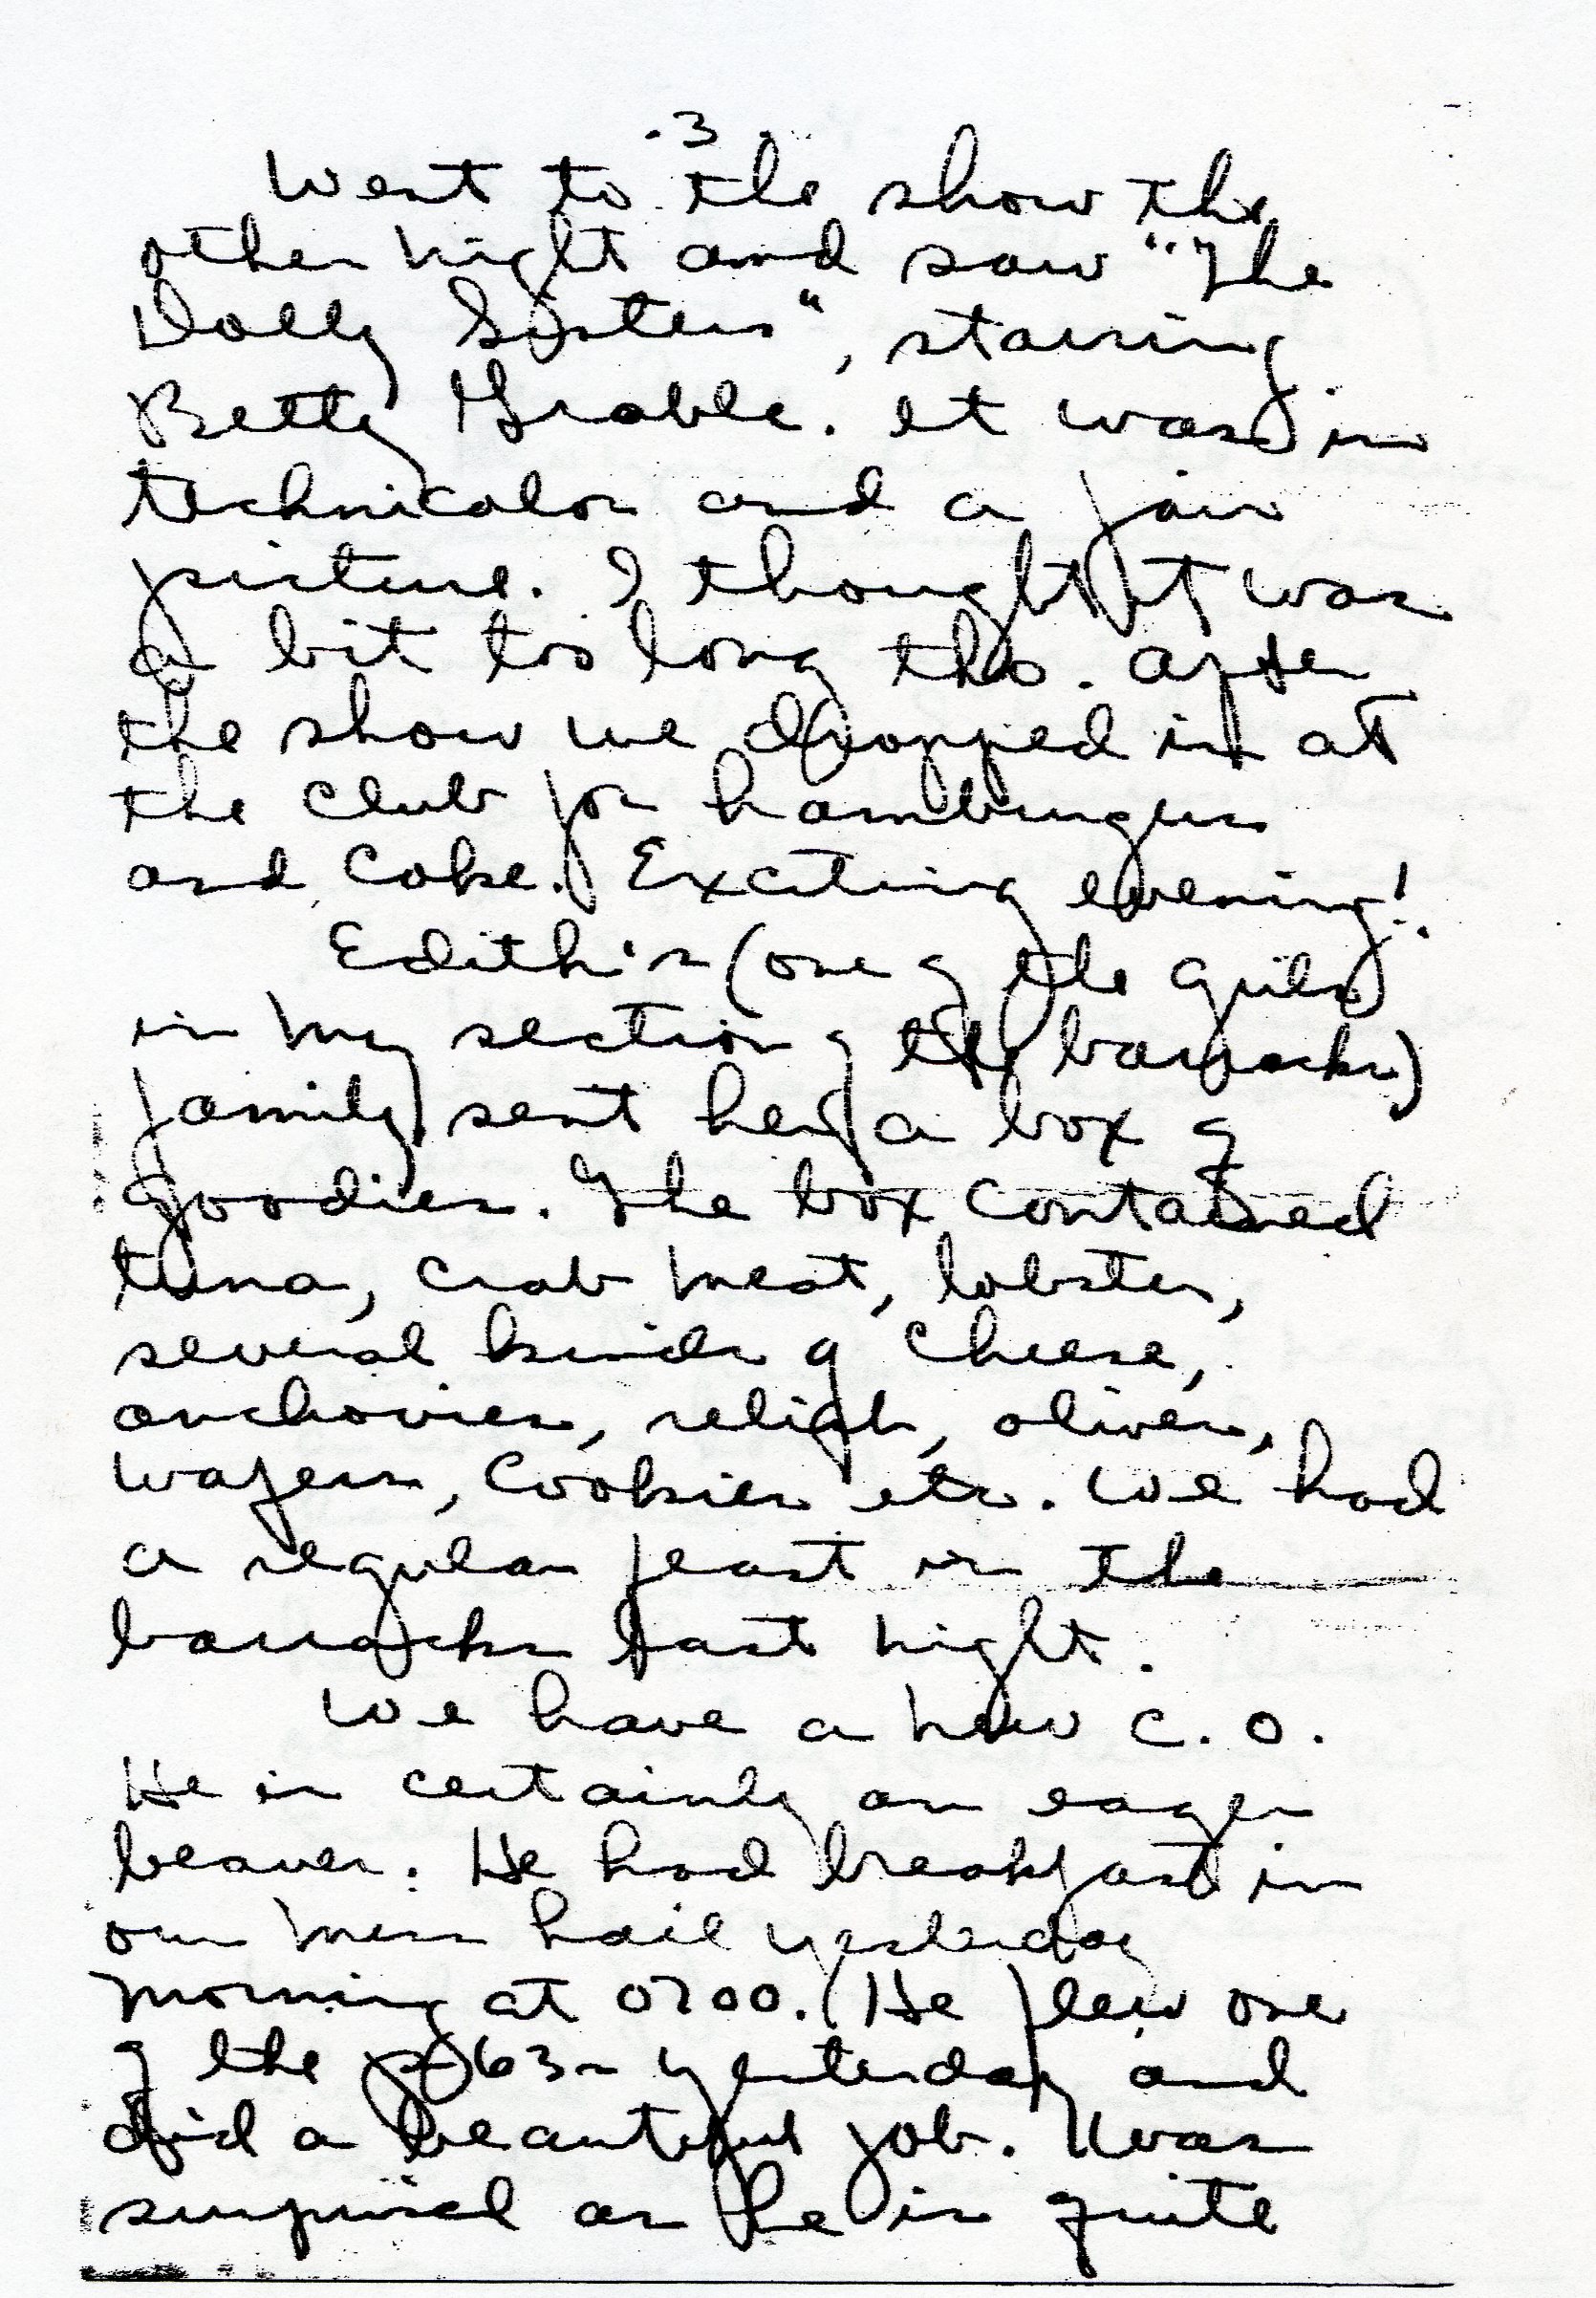 3
Went to the show the
other night and saw "The
Dolly Sisters", starring
Betty Grable. It was in
technicolor and a fair
picture. I thought it was
a bit too long tho. After
the show we dropped in at
the club for hamburgers
and coke. Exciting evening!
Edith's (one of the girls
in my section of the barracks)
family sent her a box of
goodies. The box contained
tuna, crab meat, lobster,
several kinds of cheese,
anchovies, relish, olives,
wafers, cookies etc. We had
a regular feast in the
barracks last night.
We have a new C.O.
He is certainly an eager
beaver. He had breakfast in
our mess hall yesterday
morning at 0700. He flew one
of the P-63s yesterday and
did a beautiful job. Was
surprised as he is quite